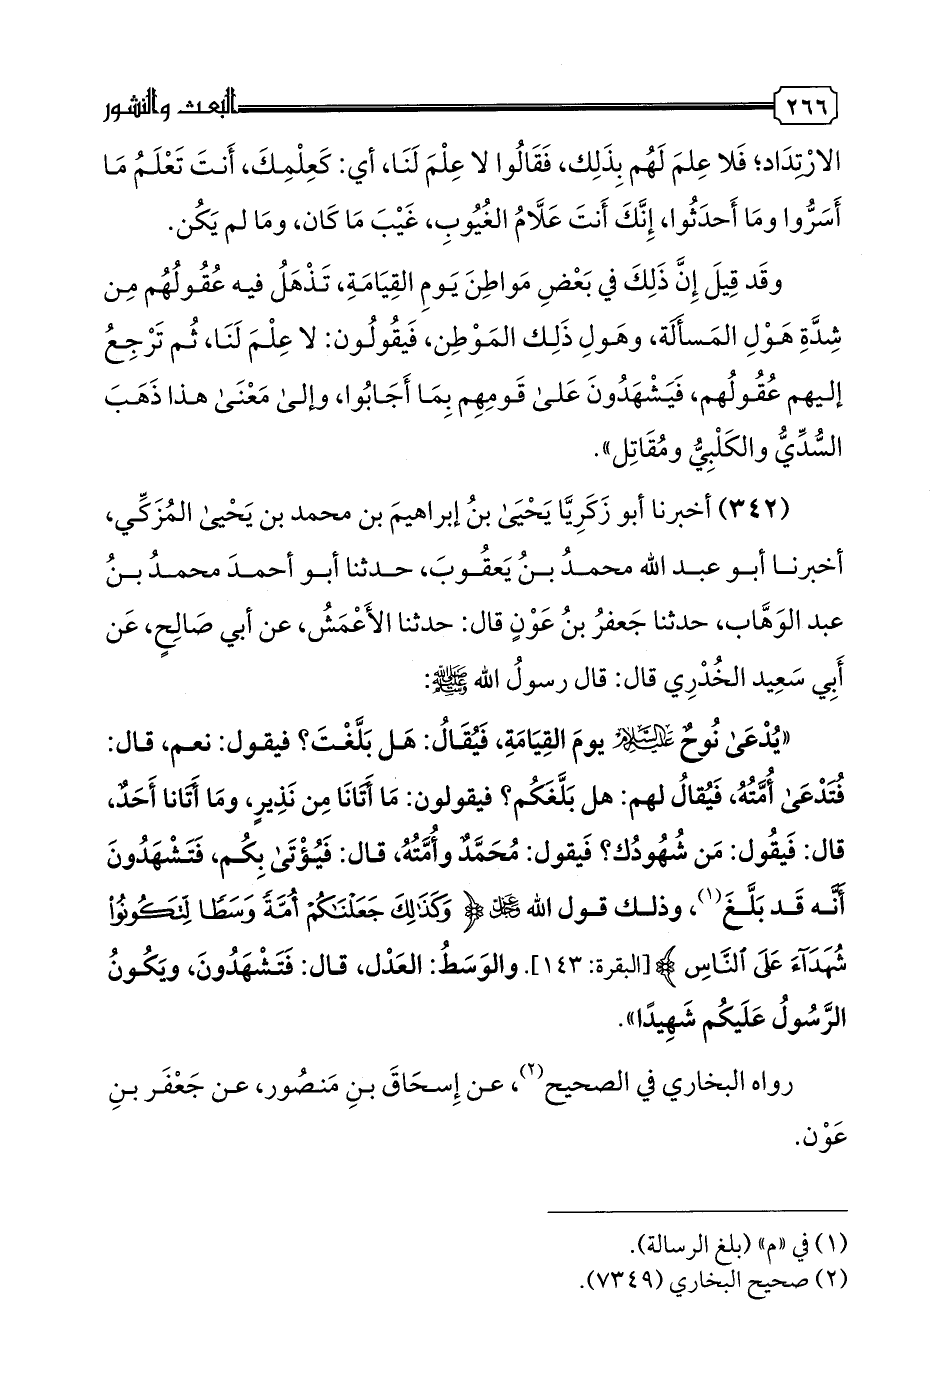 ٢٦٦ البعث والنشور
الارْتِدَاد؛ فَلا عِلمَ لَهُم بِذَلِك، فَقَالُوا لا عِلْمَ لَنَا، أي: كَعِلْمِكَ، أَنتَ تَعْلَمُ مَا
أَسَرُّوا ومَا أَحدَثُوا، إِنَّكَ أَنتَ عَلَّامُ الغُيُوبِ، غَيْبَ مَا كَان، ومَا لم يَكُن.
وقَد قِيلَ إِنَّ ذَلِكَ في بَعْضِ مَواطِنَ يَومِ القِيَامَةِ، تَذْهَلُ فيه عُقُولُهُم مِن
شِدَّةِ هَوْلِ المَسأَلَة، وهَولِ ذَلِك المَوْطِن، فَيقُولُون: لا عِلْمَ لَنَا، ثُم تَرْجِعُ
إليهم عُقُولُهُم، فَيَشْهَدُونَ عَلىٰ قَومِهِم بِمَا أَجَابُوا، وإلىٰ مَعْنَىٰ هذا ذَهَبَ
السُّدِّيُّ والكَلْبِيُّ ومُقَاتِل».
(٣٤٢) أخبرنا أبو زَكَرِيَّا يَحْيَىٰ بنُ إبراهيمَ بن محمد بن يَحْيىٰ المُزَكِّي،
أخبرنا أبو عبد الله محمدُ بنُ يَعقُوبَ، حدثنا أبو أحمدَ محمدُ بنُ
عبد الوَهَّاب، حدثنا جَعفرُ بنُ عَوْنٍ قال: حدثنا الأَعْمَشُ، عن أبي صَالِحٍ، عَن
أَبِي سَعِيد الخُدْرِي قال: قال رسولُ الله ﷺ:
«يُدْعَىٰ نُوحٌ عَلَيْهِ السَّلَام يومَ القِيَامَةِ، فَيُقَالُ: هَل بَلَّغْتَ؟ فيقول: نعم، قال:
فَتُدْعَىٰ أُمَّتُهُ، فَيُقالُ لهم: هل بَلَّغَكُم؟ فيقولون: مَا أَتَانَا مِن نَذِيرٍ، ومَا أَتَانا أَحَدٌ،
قال: فَيقُول: مَن شُهُودُك؟ فيقول: مُحَمَّدٌ وأُمَّتُهُ، قال: فَيُؤْتَىٰ بِكُم، فَتَشْهَدُونَ
أَنَّه قَد بَلَّغَ(١)، وذلك قول الله ﷻ ﴿وَكَذَٰلِكَ جَعَلْنَٰكُمْ أُمَّةً وَسَطًا لِّتَكُونُوا۟
شُهَدَآءَ عَلَى ٱلنَّاسِ﴾ [البقرة: ١٤٣]. والوَسَطُ: العَدْل، قال: فَتَشْهَدُونَ، ويَكُونُ
الرَّسُولُ عَلَيكُم شَهِيدًا».
رواه البخاري في الصحيح(٢)، عن إِسحَاقَ بنِ مَنصُور، عن جَعْفَر بنِ
عَوْن.
(١) في «م» (بلغ الرسالة).
(٢) صحيح البخاري (٧٣٤٩).